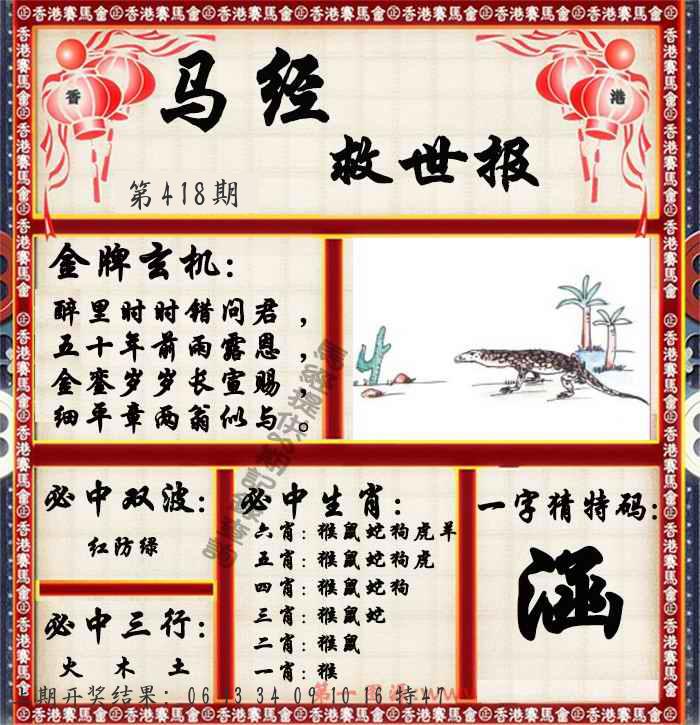 香港賽馬會 香港賽馬會 香港賽馬會 香港賽馬會 香港賽馬會 香港賽馬會 香港賽馬會
香 港
马经
救世报
第418期
金牌玄机：
醉里时时错问君，
五十年前雨露恩，
金銮岁岁长宣赐，
细平章两翁似与。
必中双波：
红防绿
必中三行：
火 木 土
必中生肖：
六肖：猴鼠蛇狗虎羊
五肖：猴鼠蛇狗虎
四肖：猴鼠蛇狗
三肖：猴鼠蛇
二肖：猴鼠
一肖：猴
一字猜特码：
涵
期开奖结果：06 13 34 09 10 16 特47
第一图